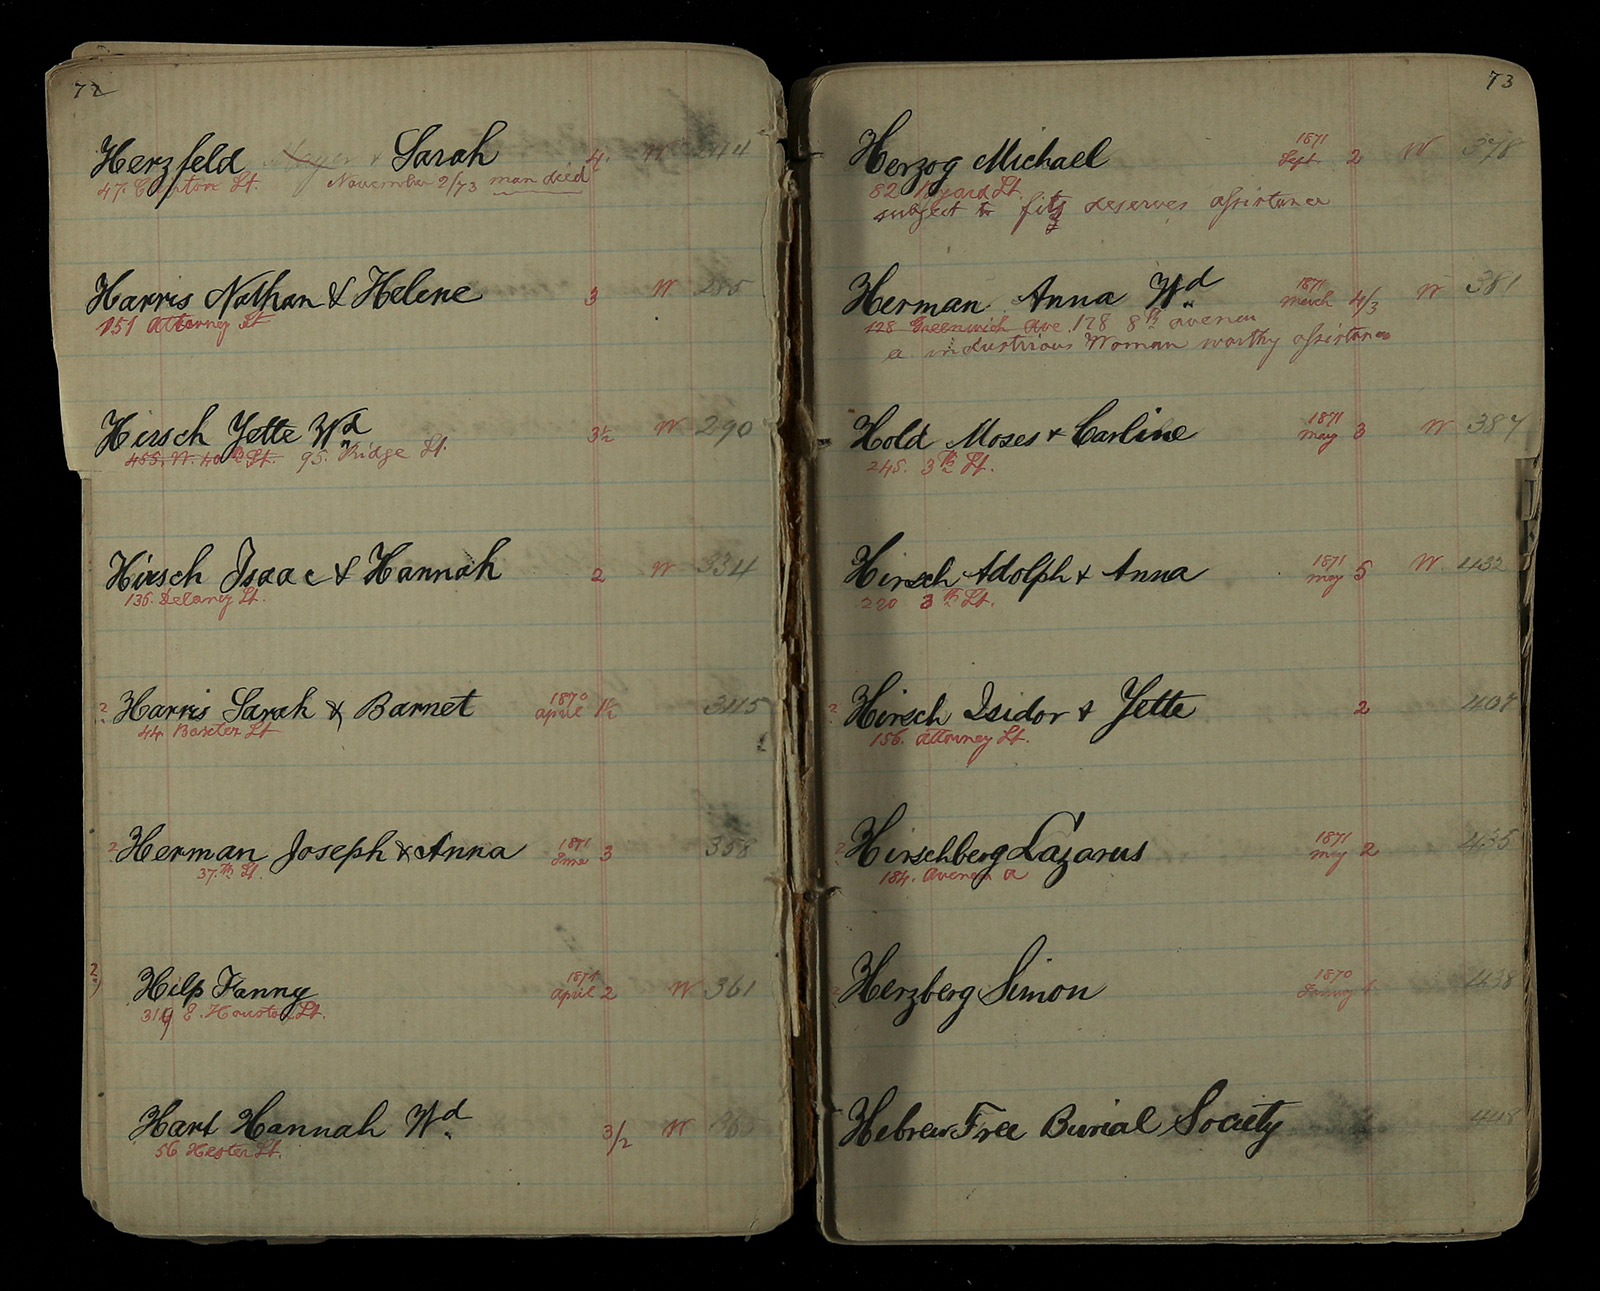 72
Herzfeld Mayer & Sarah 4. W 244
47. Clinton St. November 2/73 man died
Harris Nathan & Helene 3 W 285
151 Attorney St
Hirsch Yette Wd 3½ W 290
455. W. 40th St. 95. Ridge St.
Hirsch Isaac & Hannah 2 W 334
136. Delancy St.
2 Harris Sarah & Barnet 1870 april 1½ 345
44. Baxter St
2 Herman Joseph & Anna 1871 3 358
37.th St.
2 Hilp Fanny 1871 april 2 W 361
319 E. Houston St.
Hart Hannah Wd 3/2 W 365
56 Hester St.
73
Herzog Michael 1871 Sept. 2 W 378
82 Bayard St.
subject to fits deserves assistance
Herman Anna Wd 1871 march 4/3 W 381
128 Greenwich Ave. 178 8th avenue
a industrious Woman worthy assistance
Hold Moses & Carline 1871 may 3 W 387
245. 3th St.
Hirsch Adolph & Anna 1871 may 5 W. 432
220 3th St.
2 Hirsch Isidor & Yette 2 407
156. Attorney St.
Hirschberg Lazarus 1871 may 2 435
184. Avenue a
Herzberg Simon 1870 438
Hebrew Free Burial Society